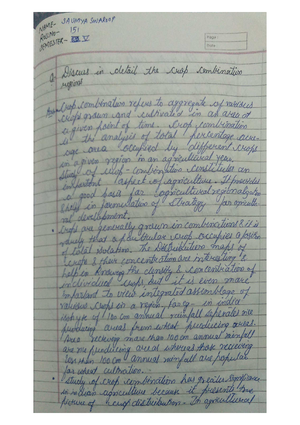 NAME- SAUMYA SWAROOP
ROLLNO- 151
SEMESTER- V
Page:
Date:
Q. Discuss in detail the crop combination
region?
Crop combination refers to aggregate of various
crops grown and cultivated in an area at
a given point of time. Crop combination
is the analysis of total percentage
age area occupied by different crops
in a given region in an agricultural year.
Study of crop-combination constitutes an
important aspect of agriculture. It provides
a good base for agricultural regionalization
in formulation of strategy for
development.
Crops are generally grown in combinations & it is
rarely that a particular crop occupies a position
of total isolation. The distribution maps of
crops & their concentration are interesting &
help in knowing the density & concentration of
individual crops but it is even more
important to view integrated assemblage of
various crops in a region. For eg - in India
isohyte of 100 cm annual rainfall separates rice
producing areas from wheat producing areas.
Area recieving more than 100 cm annual rainfall
are rice producing areas whereas those recieving
less than 100 cm annual rainfall are popular
for wheat cultivation.
Study of crop combination has greater significance
in Indian agriculture because it presents true
picture of crop distribution. In agricultural